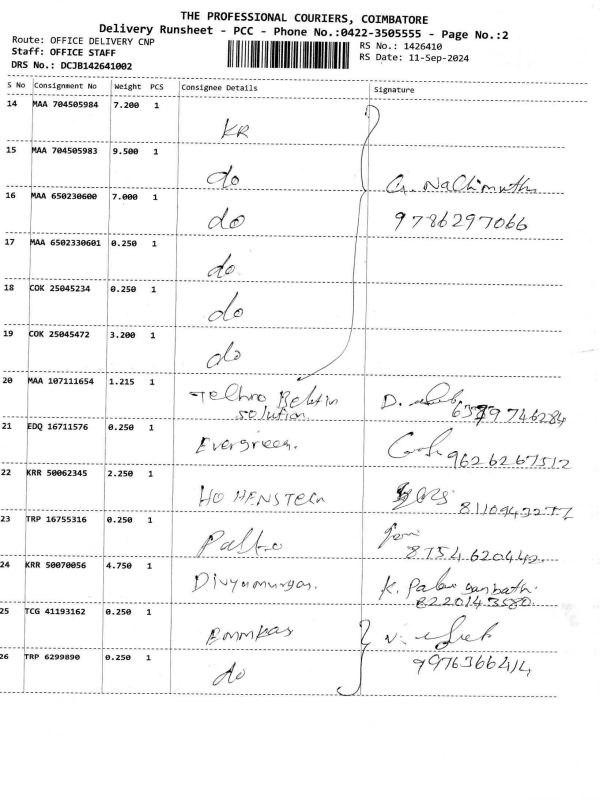 THE PROFESSIONAL COURIERS, COIMBATORE
Delivery Runsheet - PCC - Phone No.:0422-3505555 - Page No.:2
Route: OFFICE DELIVERY CNP
Staff: OFFICE STAFF
DRS No.: DCJB142641002
RS No.: 1426410
RS Date: 11-Sep-2024
S No Consignment No Weight PCS Consignee Details Signature
14 MAA 704505984 7.200 1
KR
15 MAA 704505983 9.500 1
do G. Nachimuthu
16 MAA 650230600 7.000 1
do 9786297066
17 MAA 6502330601 0.250 1
do
18 COK 25045234 0.250 1
do
19 COK 25045472 3.200 1
do
20 MAA 107111654 1.215 1
D.
solution
21 EDQ 16711576 0.250 1
Evergreen. 9626267512
22 KRR 50062345 2.250 1
8110943277
23 TRP 16755316 0.250 1
8754620442
24 KRR 50070056 4.750 1
Divyamurgan. K.
8220143580
25 TCG 41193162 0.250 1
N.
26 TRP 6299890 0.250 1
do 9976366414